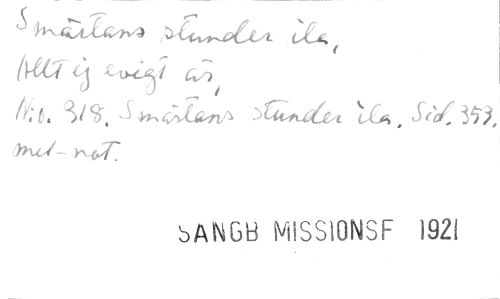 Smärtans stunder ila,
Allt ej evigt är,
N:o. 318. Smärtans stunder ila. Sid. 353.
med not.
SANGB MISSIONSF 1921